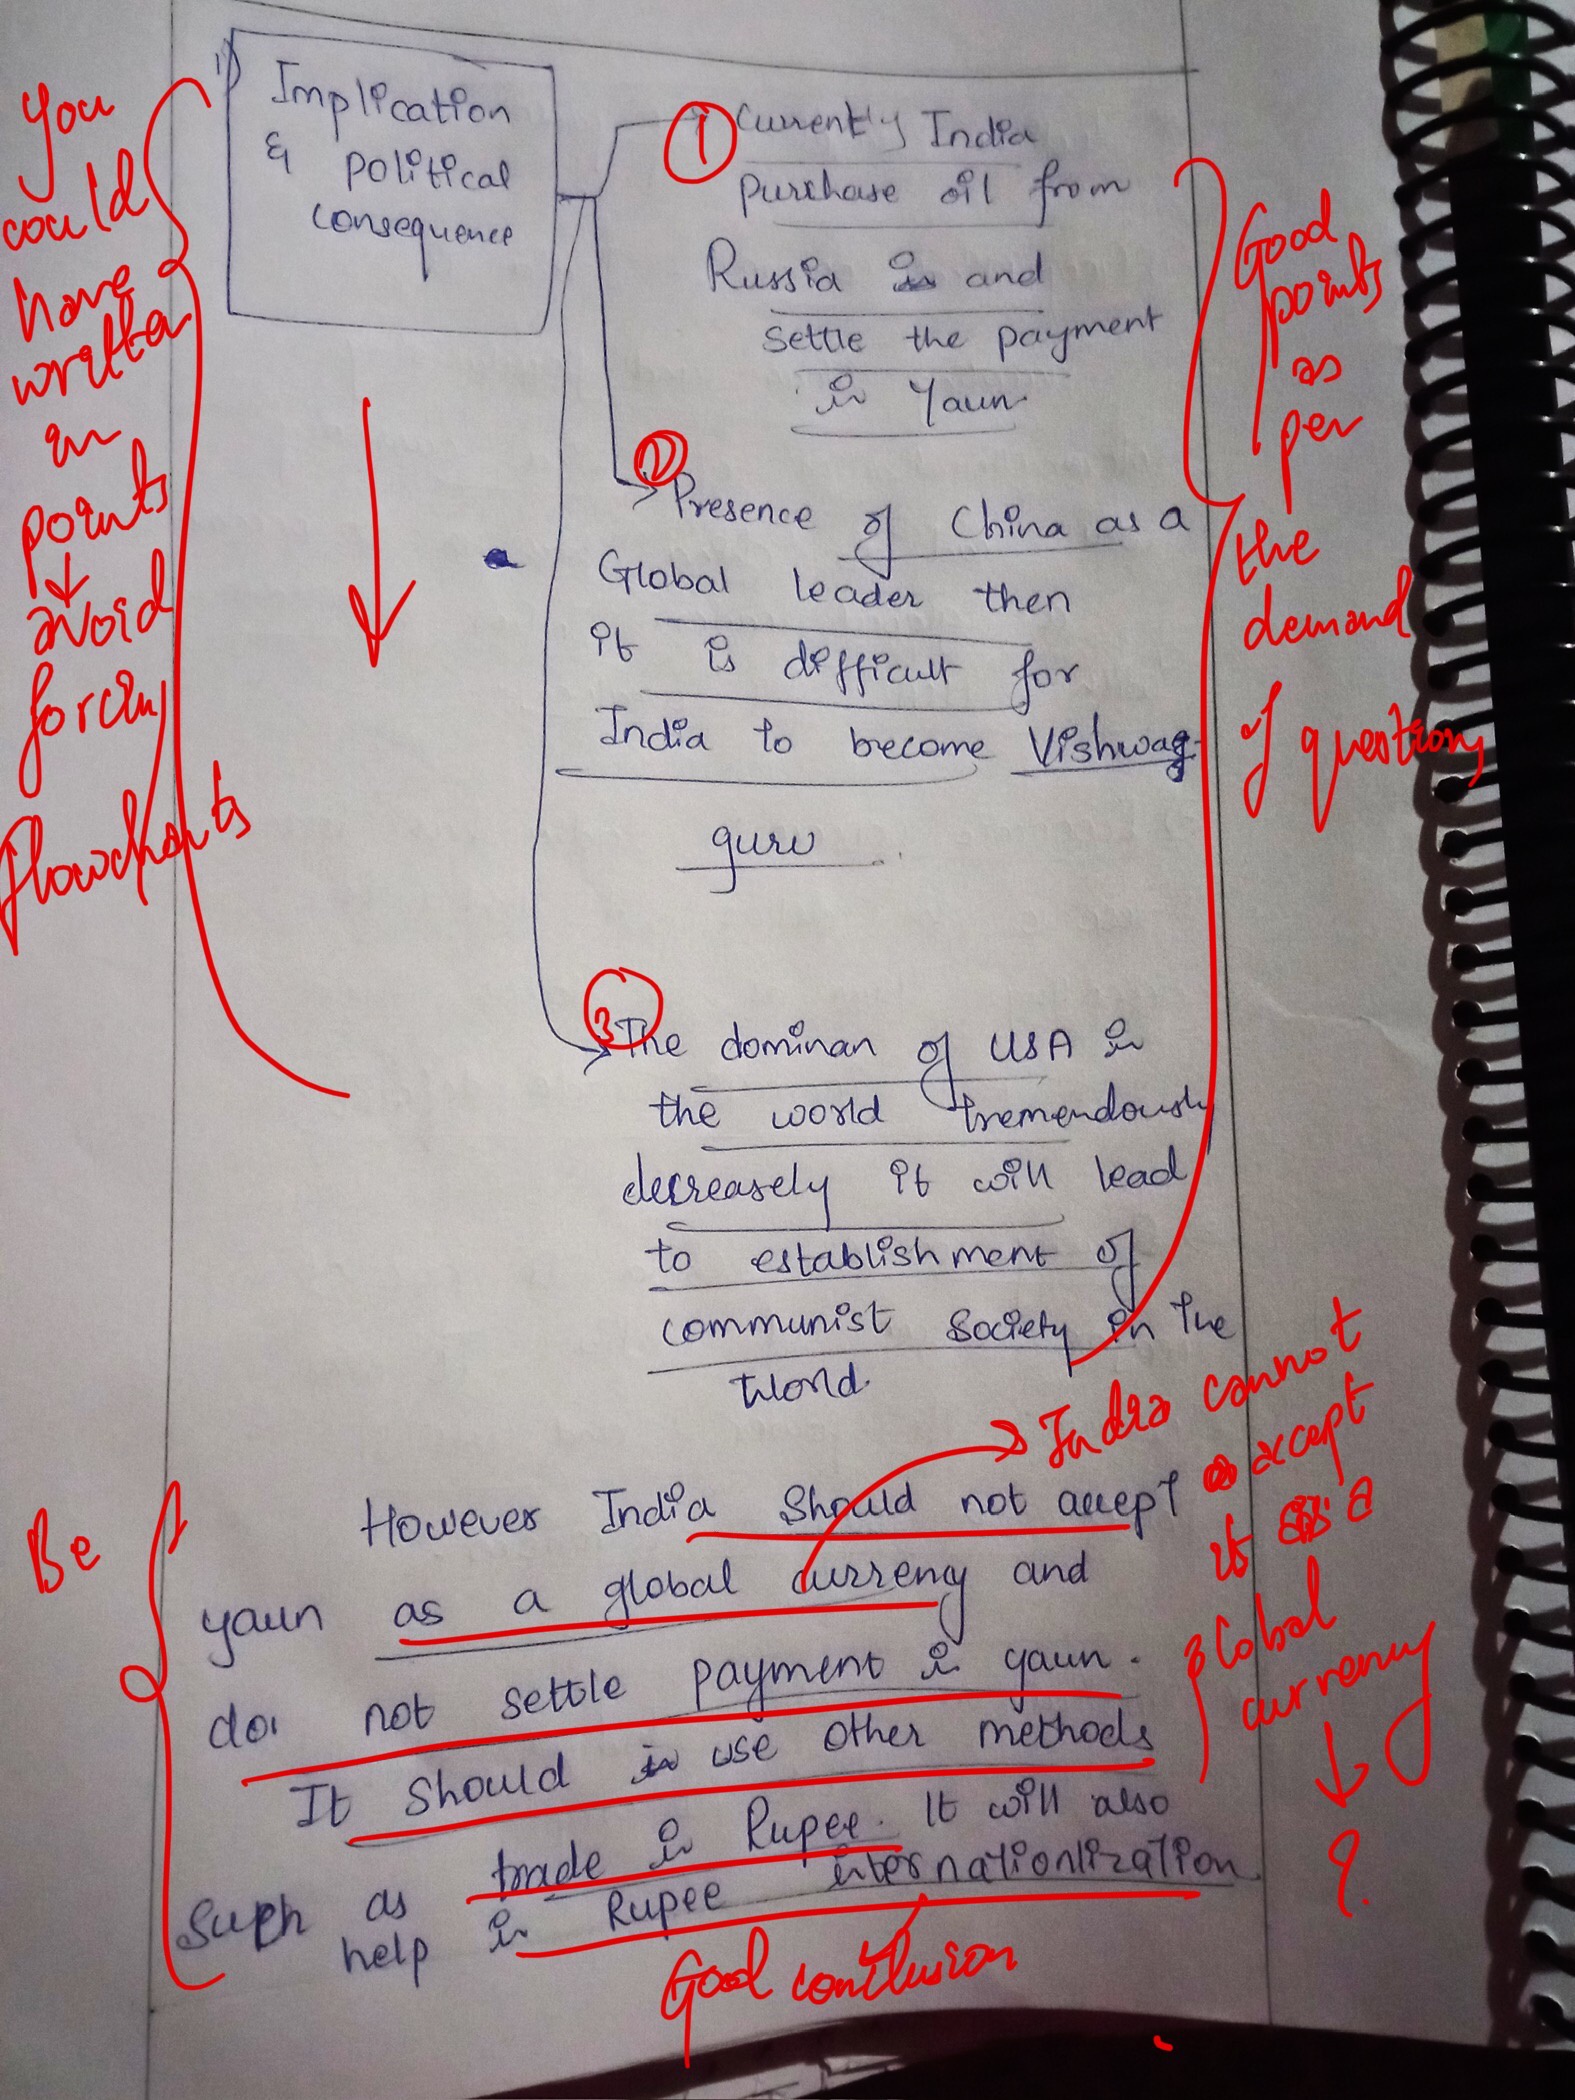 1) Implication
& political
consequence
1 Currently India
purchase oil from
Russia is and
settle the payment
in Yaun
2 Presence of China as a
Global leader then
it is difficult for
India to become Vishwag-
guru
3 The dominan of USA in
the world tremendously
decreasely it will lead
to establishment of
communist Society in the
World.
However India Should not accept
yaun as a global currency and
do not settle payment in yaun.
It should in use other methods
Such as trade in Rupee. It will also
help in Rupee internationlization
You
could
have
written
in
points
↓
avoid
forcing
flowcharts
Good
points
as
per
the
demand
of question
India cannot
accept
it as a
Global
currency
↓
?
Be
Good conclusion